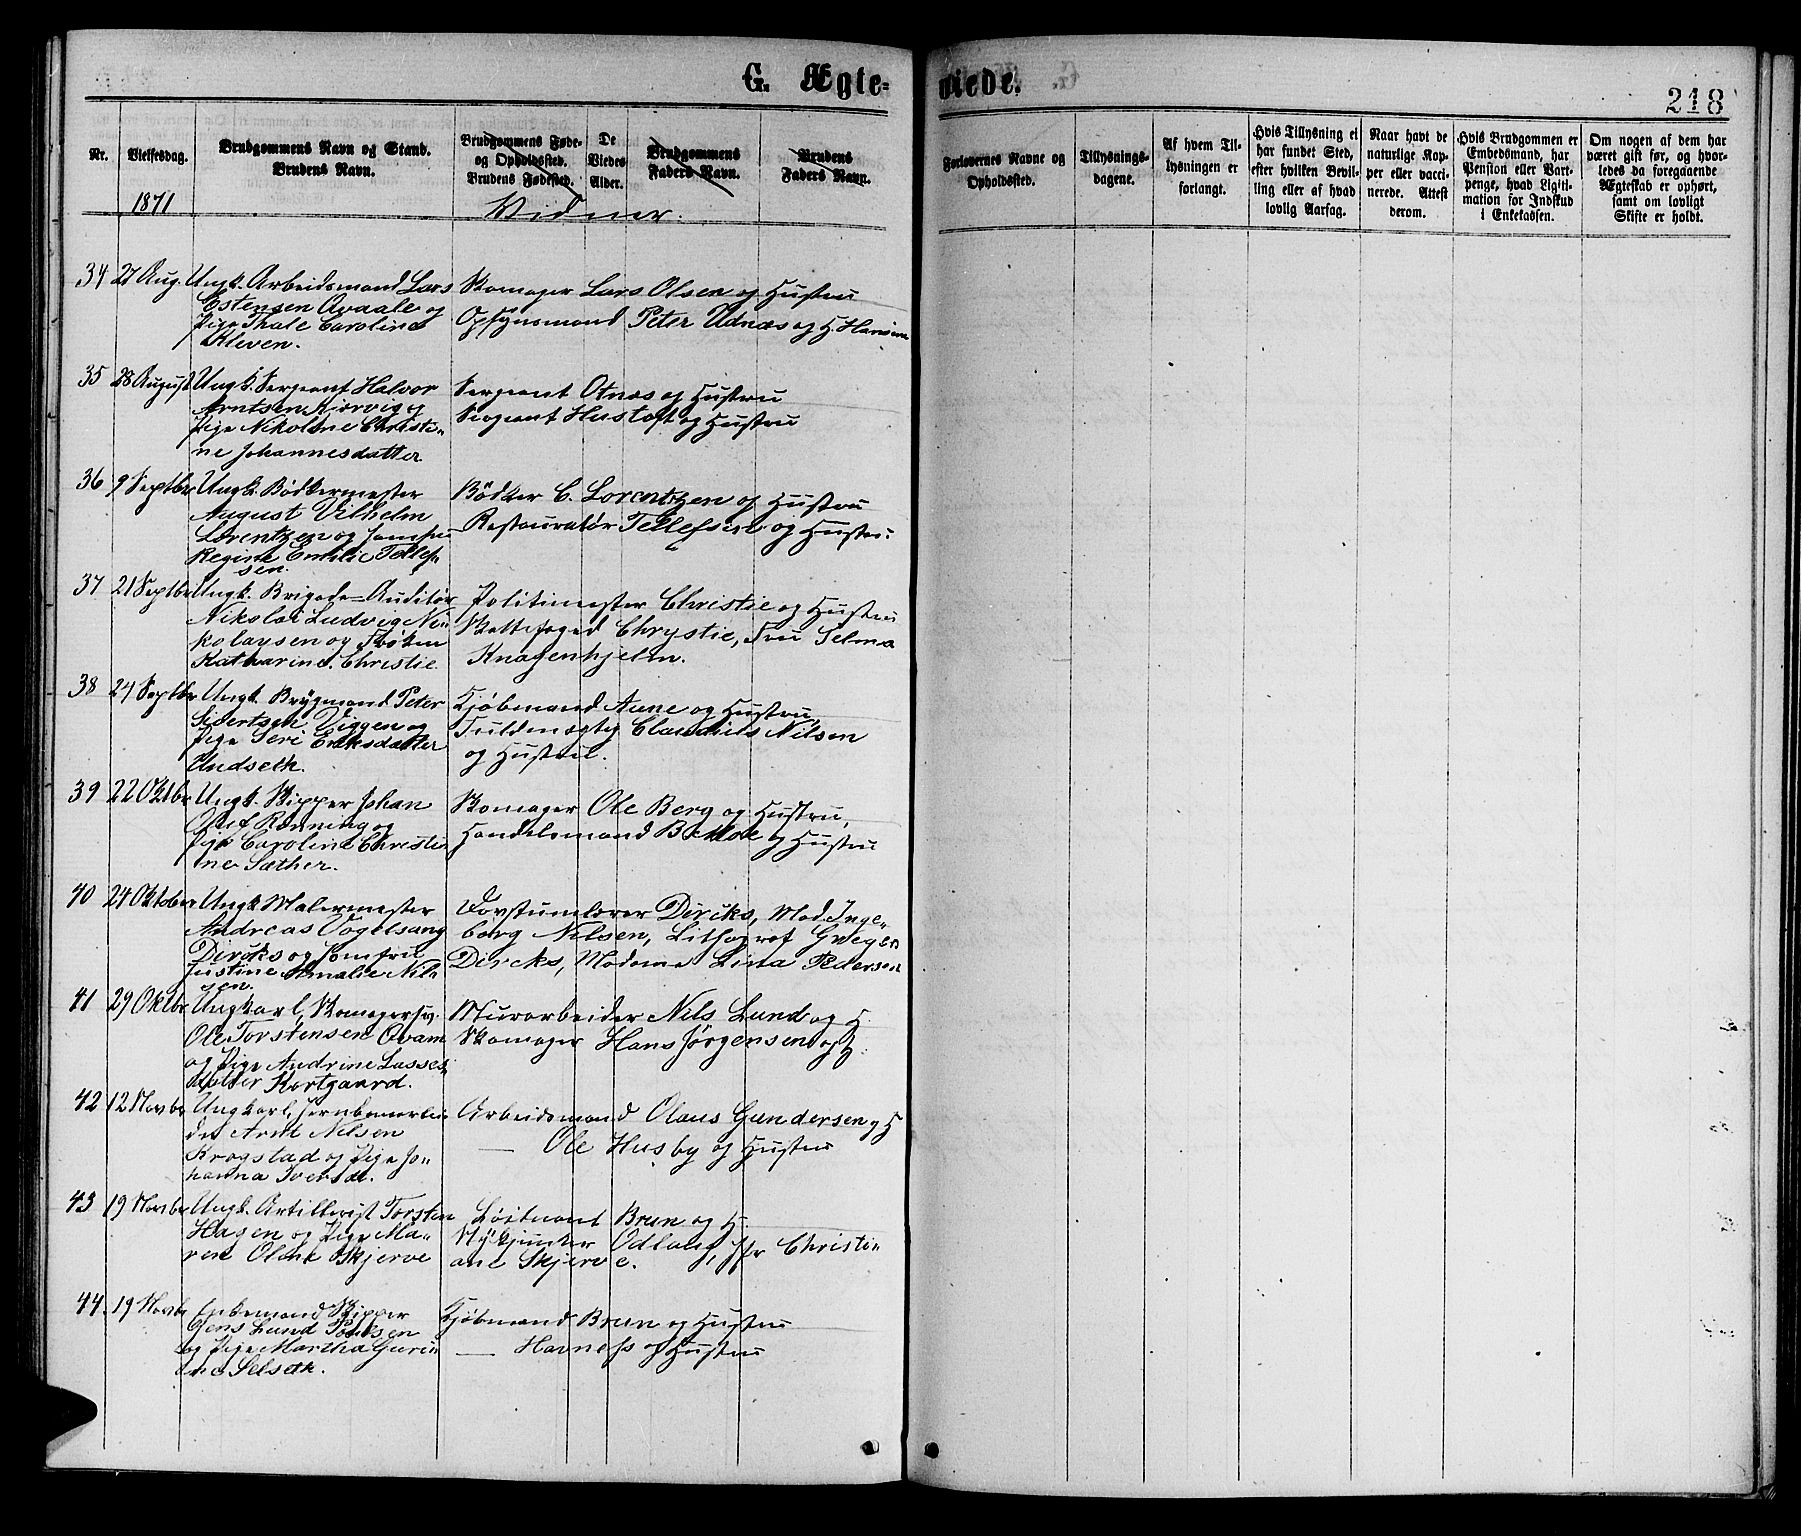 G. Ægte-
viede.
218
Nr.
Vielsesdag.
Brudgommens Navn og Stand.
Brudens Navn.
Brudgommens Føde-
og Opholdssted.
Brudens Fødested.
De
Viedes
Alder.
Brudgommens
Faders Navn.
Brudens
Faders Navn.
Forlovernes Navne og
Opholdssted.
Tillysnings-
dagene.
Af hvem Til-
lysningen er
forlangt.
Hvis Tillysning ei
har fundet Sted,
efter hvilken Bevil-
ling eller af hvad
lovlig Aarsag.
Naar havt de
naturlige Kop-
per eller vacci-
nerede. Attest
derom.
Hvis Brudgommen er
Embedsmand, har
Pension eller Vart-
penge, hvad Ligiti-
mation for Indskud
i Enkekassen.
Om nogen af dem har
været gift før, og hvor-
ledes da foregaaende
Ægteskab er ophørt,
samt om lovligt
Skifte er holdt.
1871
Vidner.
34 27 Aug. Ungk. Arbeidsmand Lars
Estensen Qvaale og
Pige Thale Caroline
Kleven.
Skomager Lars Olsen og Hustru
Opsynsmand Peter Udnæs og H.
35 28 August Ungk. Sergeant Halvor
Arntsen Kjørvig og
Pige Nikoline Christi-
ne Johannesdatter
Sergeant Otnæs og Hustru
Sergeant Hustoft og Hustru
36 9 Septbr Ungk. Bødkermester
August Vilhelm
Lorentzen og Jomfru
Regine Emilie Tellef-
sen.
Bødker C. Lorentzen og Hustru
Restauratør Tellefsen og Hustru
37 21 Septbr Ungk. Brigade-Auditør
Nikolai Ludvig Ni-
kolaysen og Frøken
Katharine Christie
Politimester Christie og Hustru
Skattefoged Chrystie, Fru Selma
Knagenhjelm.
38 24 Septbr Ungk. Brygmand Peter
Sivertsen Viggen og
Pige Seri Eriksdatter
Undseth.
Kjøbmand Aune og Hustru,
Fuldmægtig Claudius Nilsen
og Hustru.
39 22 Oktbr Ungk. Skipper Johan
Oluf Rønning og
Pige Caroline Christi-
ne Sæther.
Skomager Ole Berg og Hustru,
Handelsmand B. Moe og Hustru
40 24 Oktober Ungk. Malermester
Andreas Vogelsang
Dircks og Jomfru
Justine Amalie Nil-
sen.
Dircks, Mad. Inge-
borg Nilsen, Lithograf Greger
Dircks, Madame Lina Pedersen
41 29 Oktbr Ungkarl, Skomagersv.
Ole Torstensen Qvam
og Pige Andrine Lasses-
datter Kortgaard.
Murarbeider Nils Lund og H.
Skomager Hans Jørgensen og H
42 12 Novbr Ungkarl, Jernbanearbei-
der Arnt Nilsen
Krogstad og Pige Jo-
hanna Iversd.
Arbeidsmand Olaus Gundersen og H
— Ole Husby og Hustru
43 19 Novbr Ungk. Artillerist Torsten
Hagen og Pige Ma-
ren Oline Skjerve
Løitnant Brun og H.
Odlaug, Jfr Christi-
ane Skjerve.
44. 19 Novbr Enkemand Skipper
Jens Lund Poulsen
og Pige Martha Gurin-
e Selseth.
Kjøbmand Brun og Hustru
— Havness og Hustru